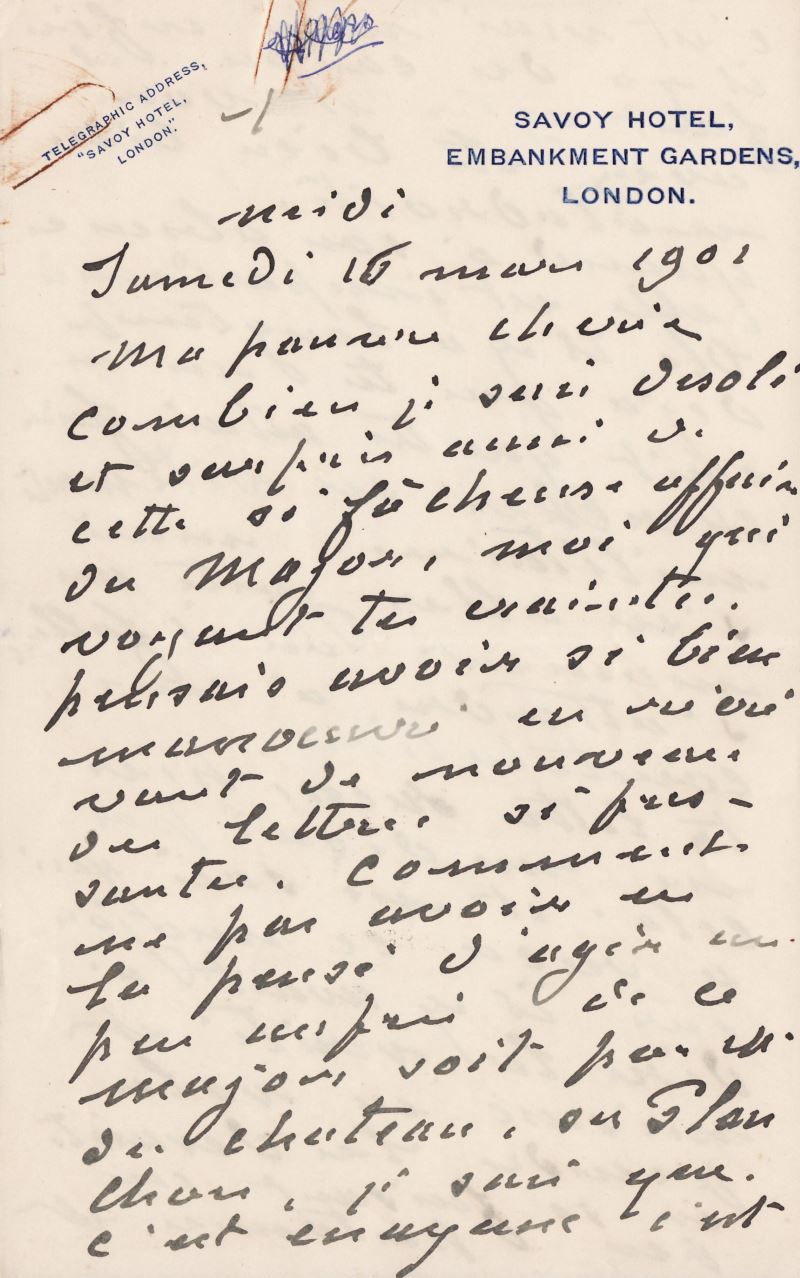 TELEGRAPHIC ADDRESS,
"SAVOY HOTEL,
LONDON."
SAVOY HOTEL,
EMBANKMENT GARDENS,
LONDON.
midi
Samedi 16 mars 1901
Ma pauvre cherie
Combien je suis desolé
et surpris aussi de
cette si fâcheuse affaire
du Major, moi qui
voyant tes craintes.
pensais avoir si bien
manoeuvré en
vant de nouveau
des lettres si pres-
santes. Comment
ne pas avoir eu
la pensé d'agir un
peu auprès de ce
major soit par M.
du chateau, ou Plan
chon, je sais que.
c'est enuyeux c'est